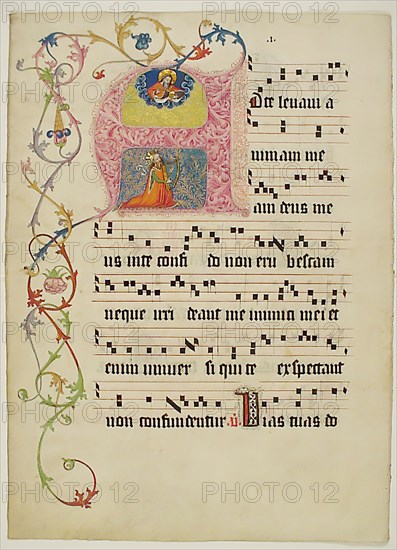 .I.
A Dte levavi a
nimam me
am deus me
us in te confi do non eru bescam
neque irri deant me inimici mei et
enim univer si qui te exspectant
non confundentur. V. Vias tuas do
PHOTO 12